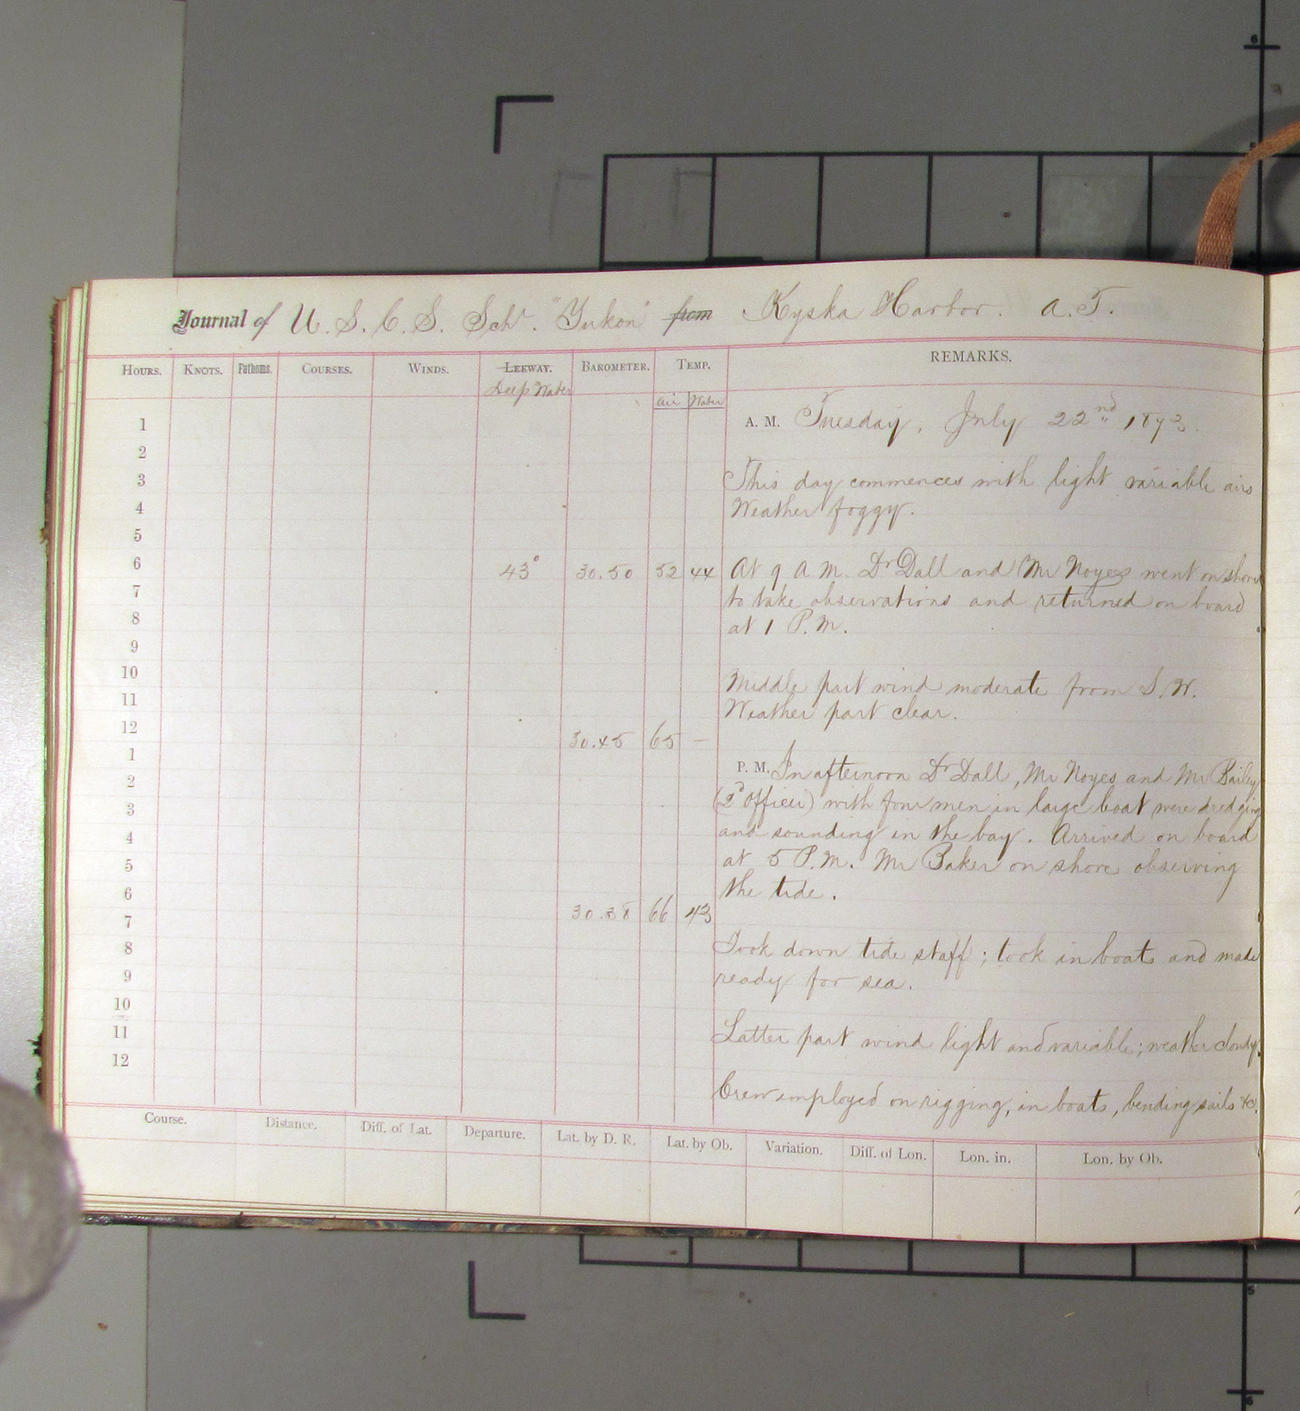 Journal of U. S. C. S. Schr. "Yukon" from Kyska Harbor. A. T.
HOURS. KNOTS. Fathoms. COURSES. WINDS. LEEWAY. BAROMETER. TEMP. REMARKS.
Deep Water
Air Water
1
A. M. Tuesday, July 22nd 1873.
2
3
This day commences with light variable airs
4
Weather foggy.
5
6 43° 30.50 52 44 At 9 A M. Dr Dall and Mr Noyes went on shore
7
to take observations and returned on board
8
at 1 P.M.
9
10
Middle part wind moderate from S.W.
11
Weather part clear.
12
30.45 65 —
1
P. M. In afternoon Dr Dall, Mr Noyes and Mr Bailey
2
(2d Officer) with four men in large boat were dredging
3
and sounding in the bay. Arrived on board
4
at 5 P.M. Mr Baker on shore observing
5
the tide.
6
30.38 66 43
7
8
Took down tide staff; took in boats and made
9
ready for sea.
10
11
Latter part wind light and variable; weather cloudy.
12
Crew employed on rigging, in boats, bending sails &c.
Course. Distance. Diff. of Lat. Departure. Lat. by D. R. Lat. by Ob. Variation. Diff. of Lon. Lon. in. Lon. by Ob.
6
5
5
6